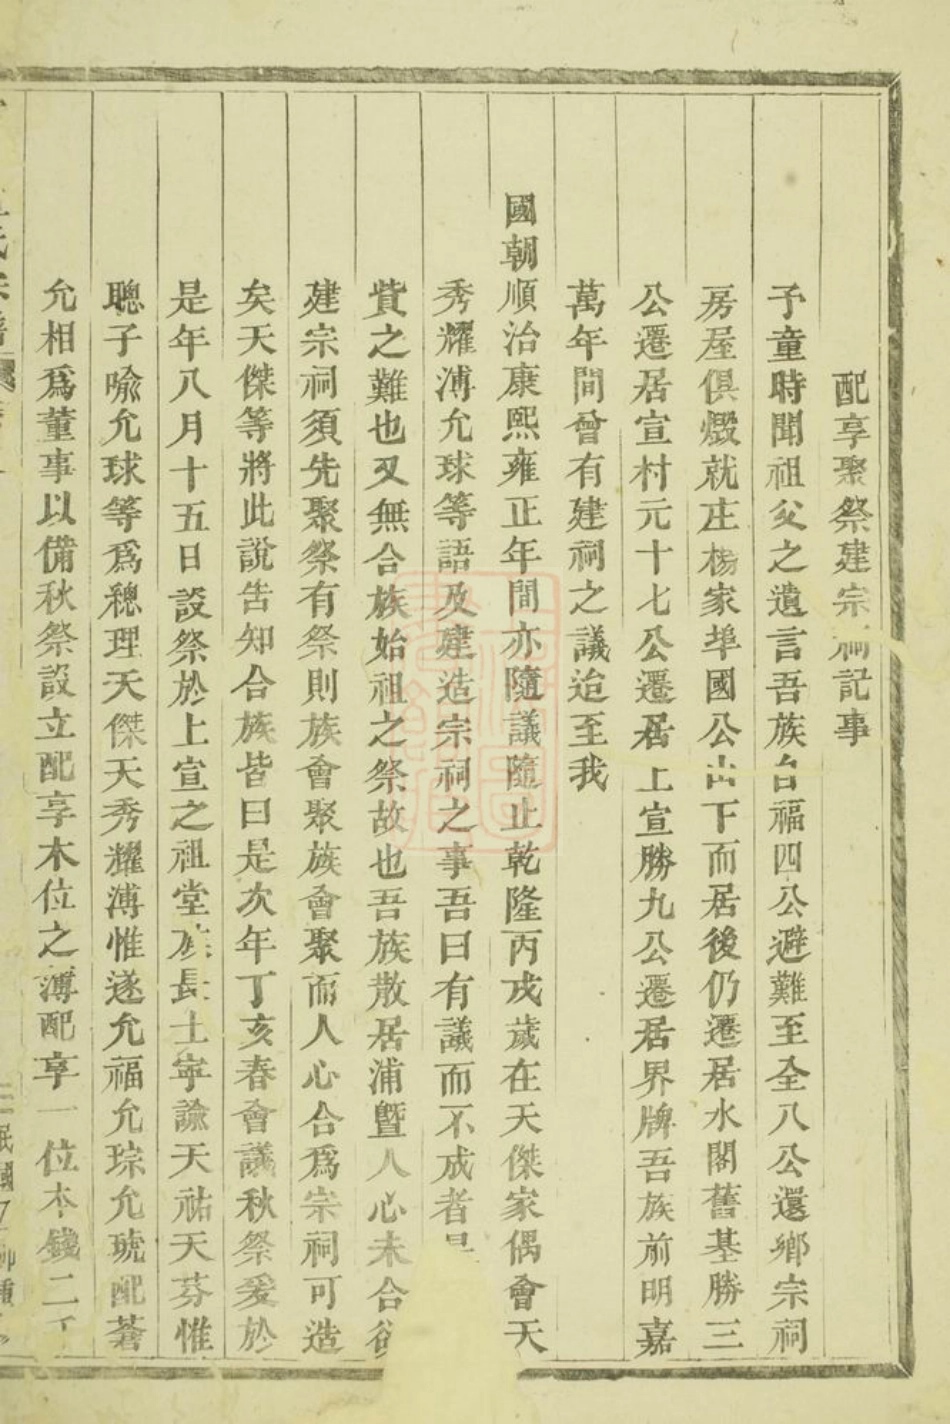 配享聚祭建宗祠記事
予童時聞祖父之遺言吾族台福四公避難至全八公還鄉宗祠
房屋俱燬就庄楊家埠國公山下而居後仍遷居水閣舊基勝三
公遷居宣村元十七公遷居上宣勝九公遷居界牌吾族前明嘉
萬年間曾有建祠之議迨至我
國朝順治康熙雍正年間亦隨議隨止乾隆丙戌歲在天傑家偶會天
秀耀溥允球等語及建造宗祠之事吾曰有議而不成者
貲之難也又無合族始祖之祭故也吾族散居浦暨人心未合欲
建宗祠須先聚祭有祭則族會聚族會聚而人心合爲宗祠可造
矣天傑等將此說告知合族皆曰是次年丁亥春會議秋祭爰於
是年八月十五日設祭於上宣之祖堂族長士寧諭天祐天芬惟
聰子喻允球等爲總理天傑天秀耀溥惟遂允福允琮允琥配蒼
允相爲董事以備秋祭設立配享木位之溥配享一位本錢二
民國